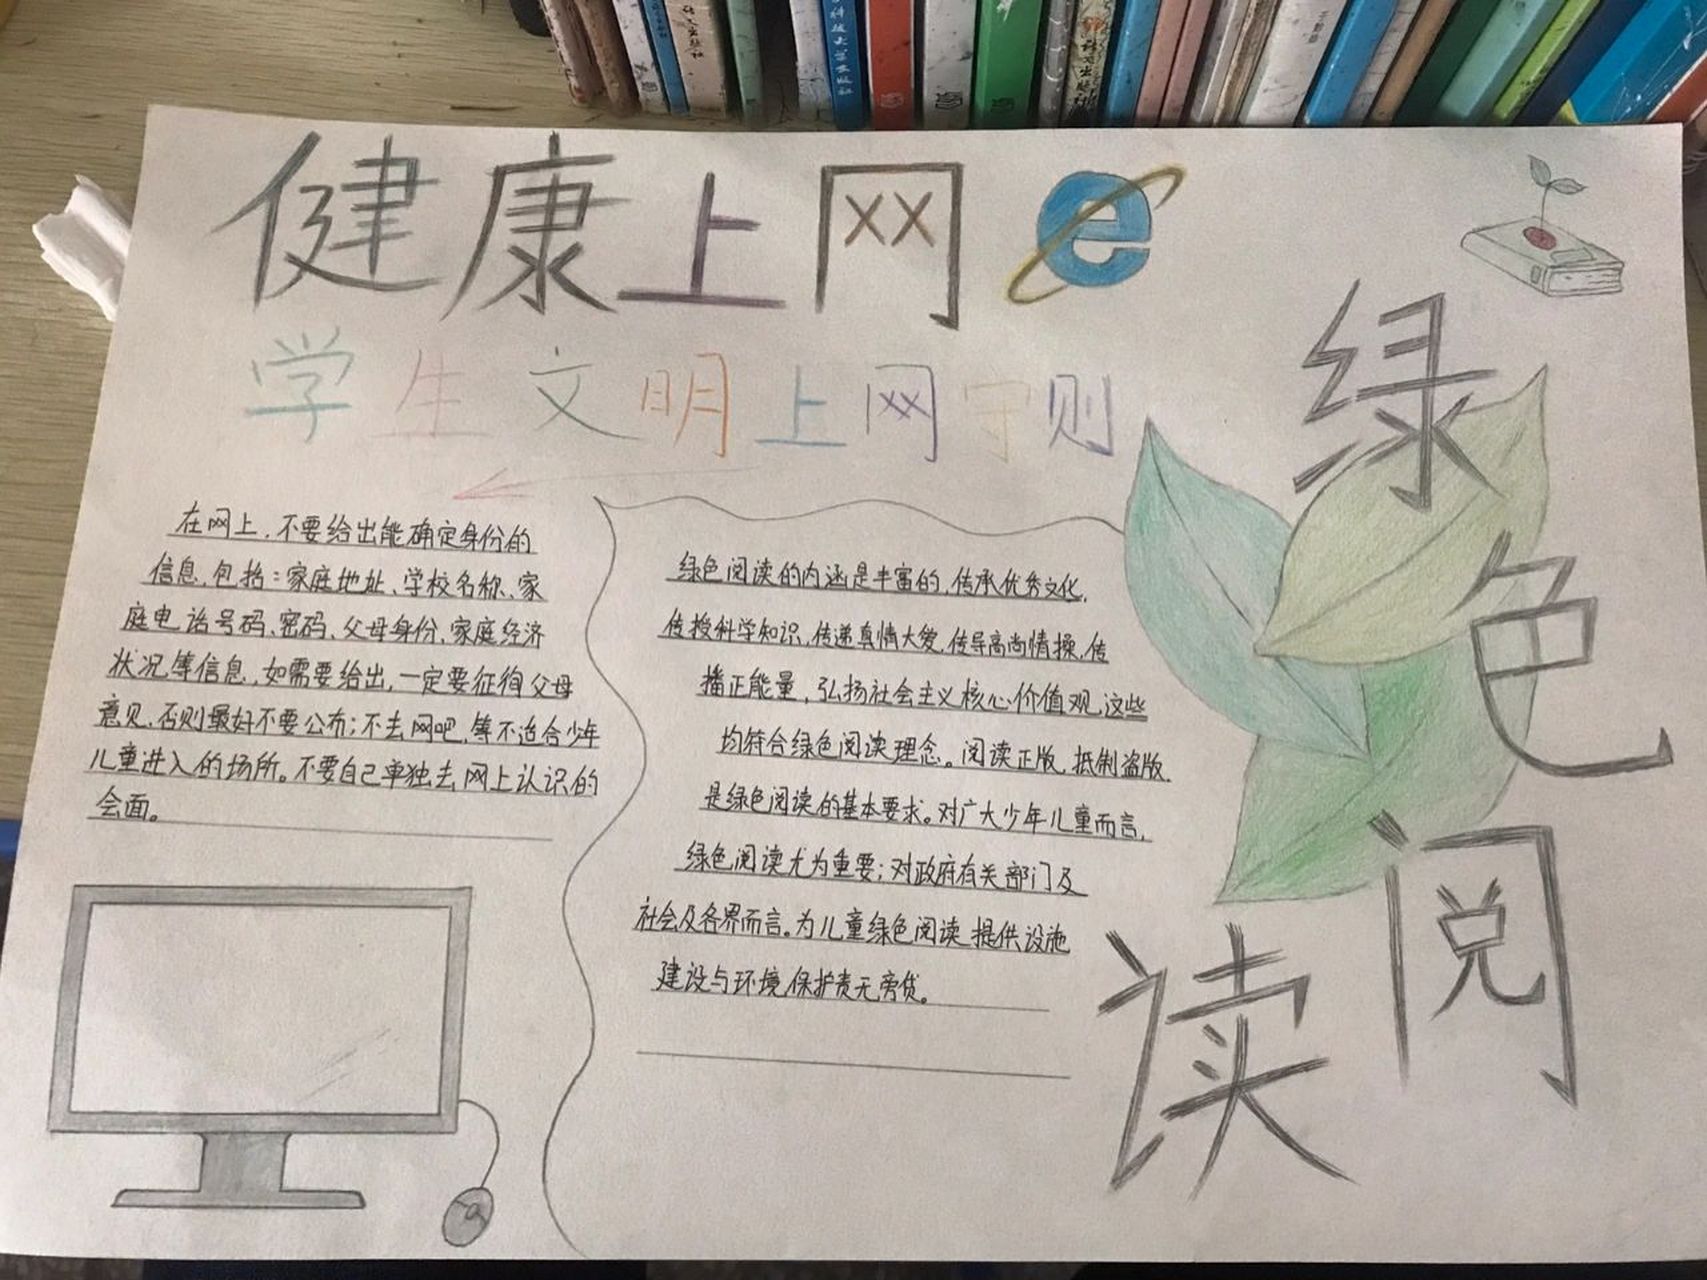 健康上网
学生文明上网守则
在网上，不要给出能确定身份的
信息，包括：家庭地址、学校名称、家
庭电话号码、密码、父母身份、家庭经济
状况等信息，如需要给出，一定要征得父母
意见，否则最好不要公布；不去网吧，等不适合少年
儿童进入的场所。不要自己单独去网上认识的
会面。
绿色阅读的内涵是丰富的，传承优秀文化，
传授科学知识，传递真情大爱，传导高尚情操，传
播正能量，弘扬社会主义核心价值观，这些
均符合绿色阅读理念。阅读正版，抵制盗版，
是绿色阅读的基本要求。对广大少年儿童而言，
绿色阅读尤为重要；对政府有关部门及
社会及各界而言。为儿童绿色阅读提供设施
建设与环境保护责无旁贷。
绿色阅读